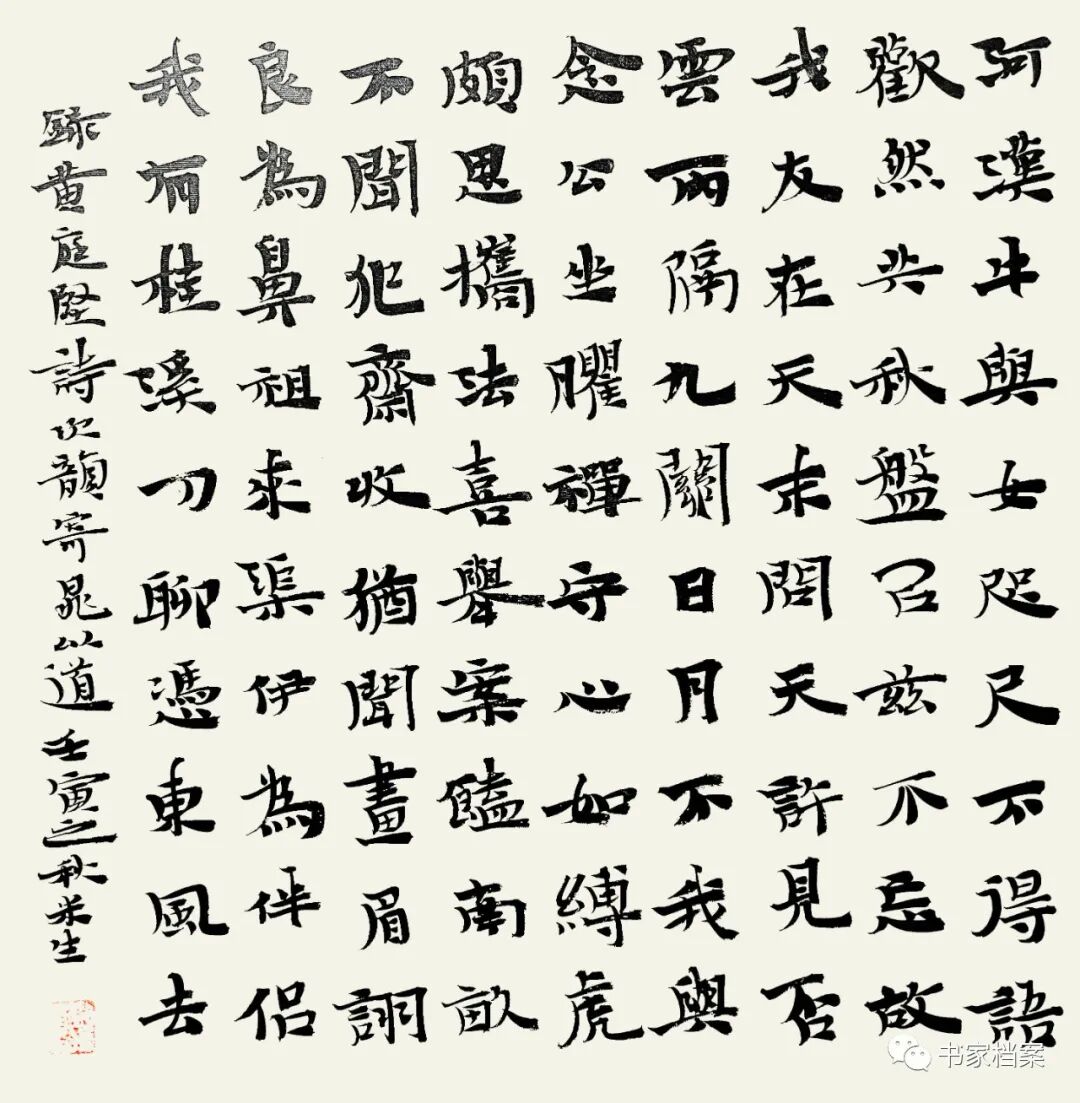 河漢牛與女咫尺不得語
歡然共秋盤召兹不忘故
我友在天末問天許見否
雲雨隔九關日月不我與
念公坐臞禪守心如縛虎
頗思攜法喜舉案饁南畝
不聞犯齋收猶聞畫眉詡
良為鼻祖求渠伊為伴侶
我有桂溪刀聊憑東風去
錄黄庭堅詩次韻寄晁以道 壬寅之秋米生
书家档案